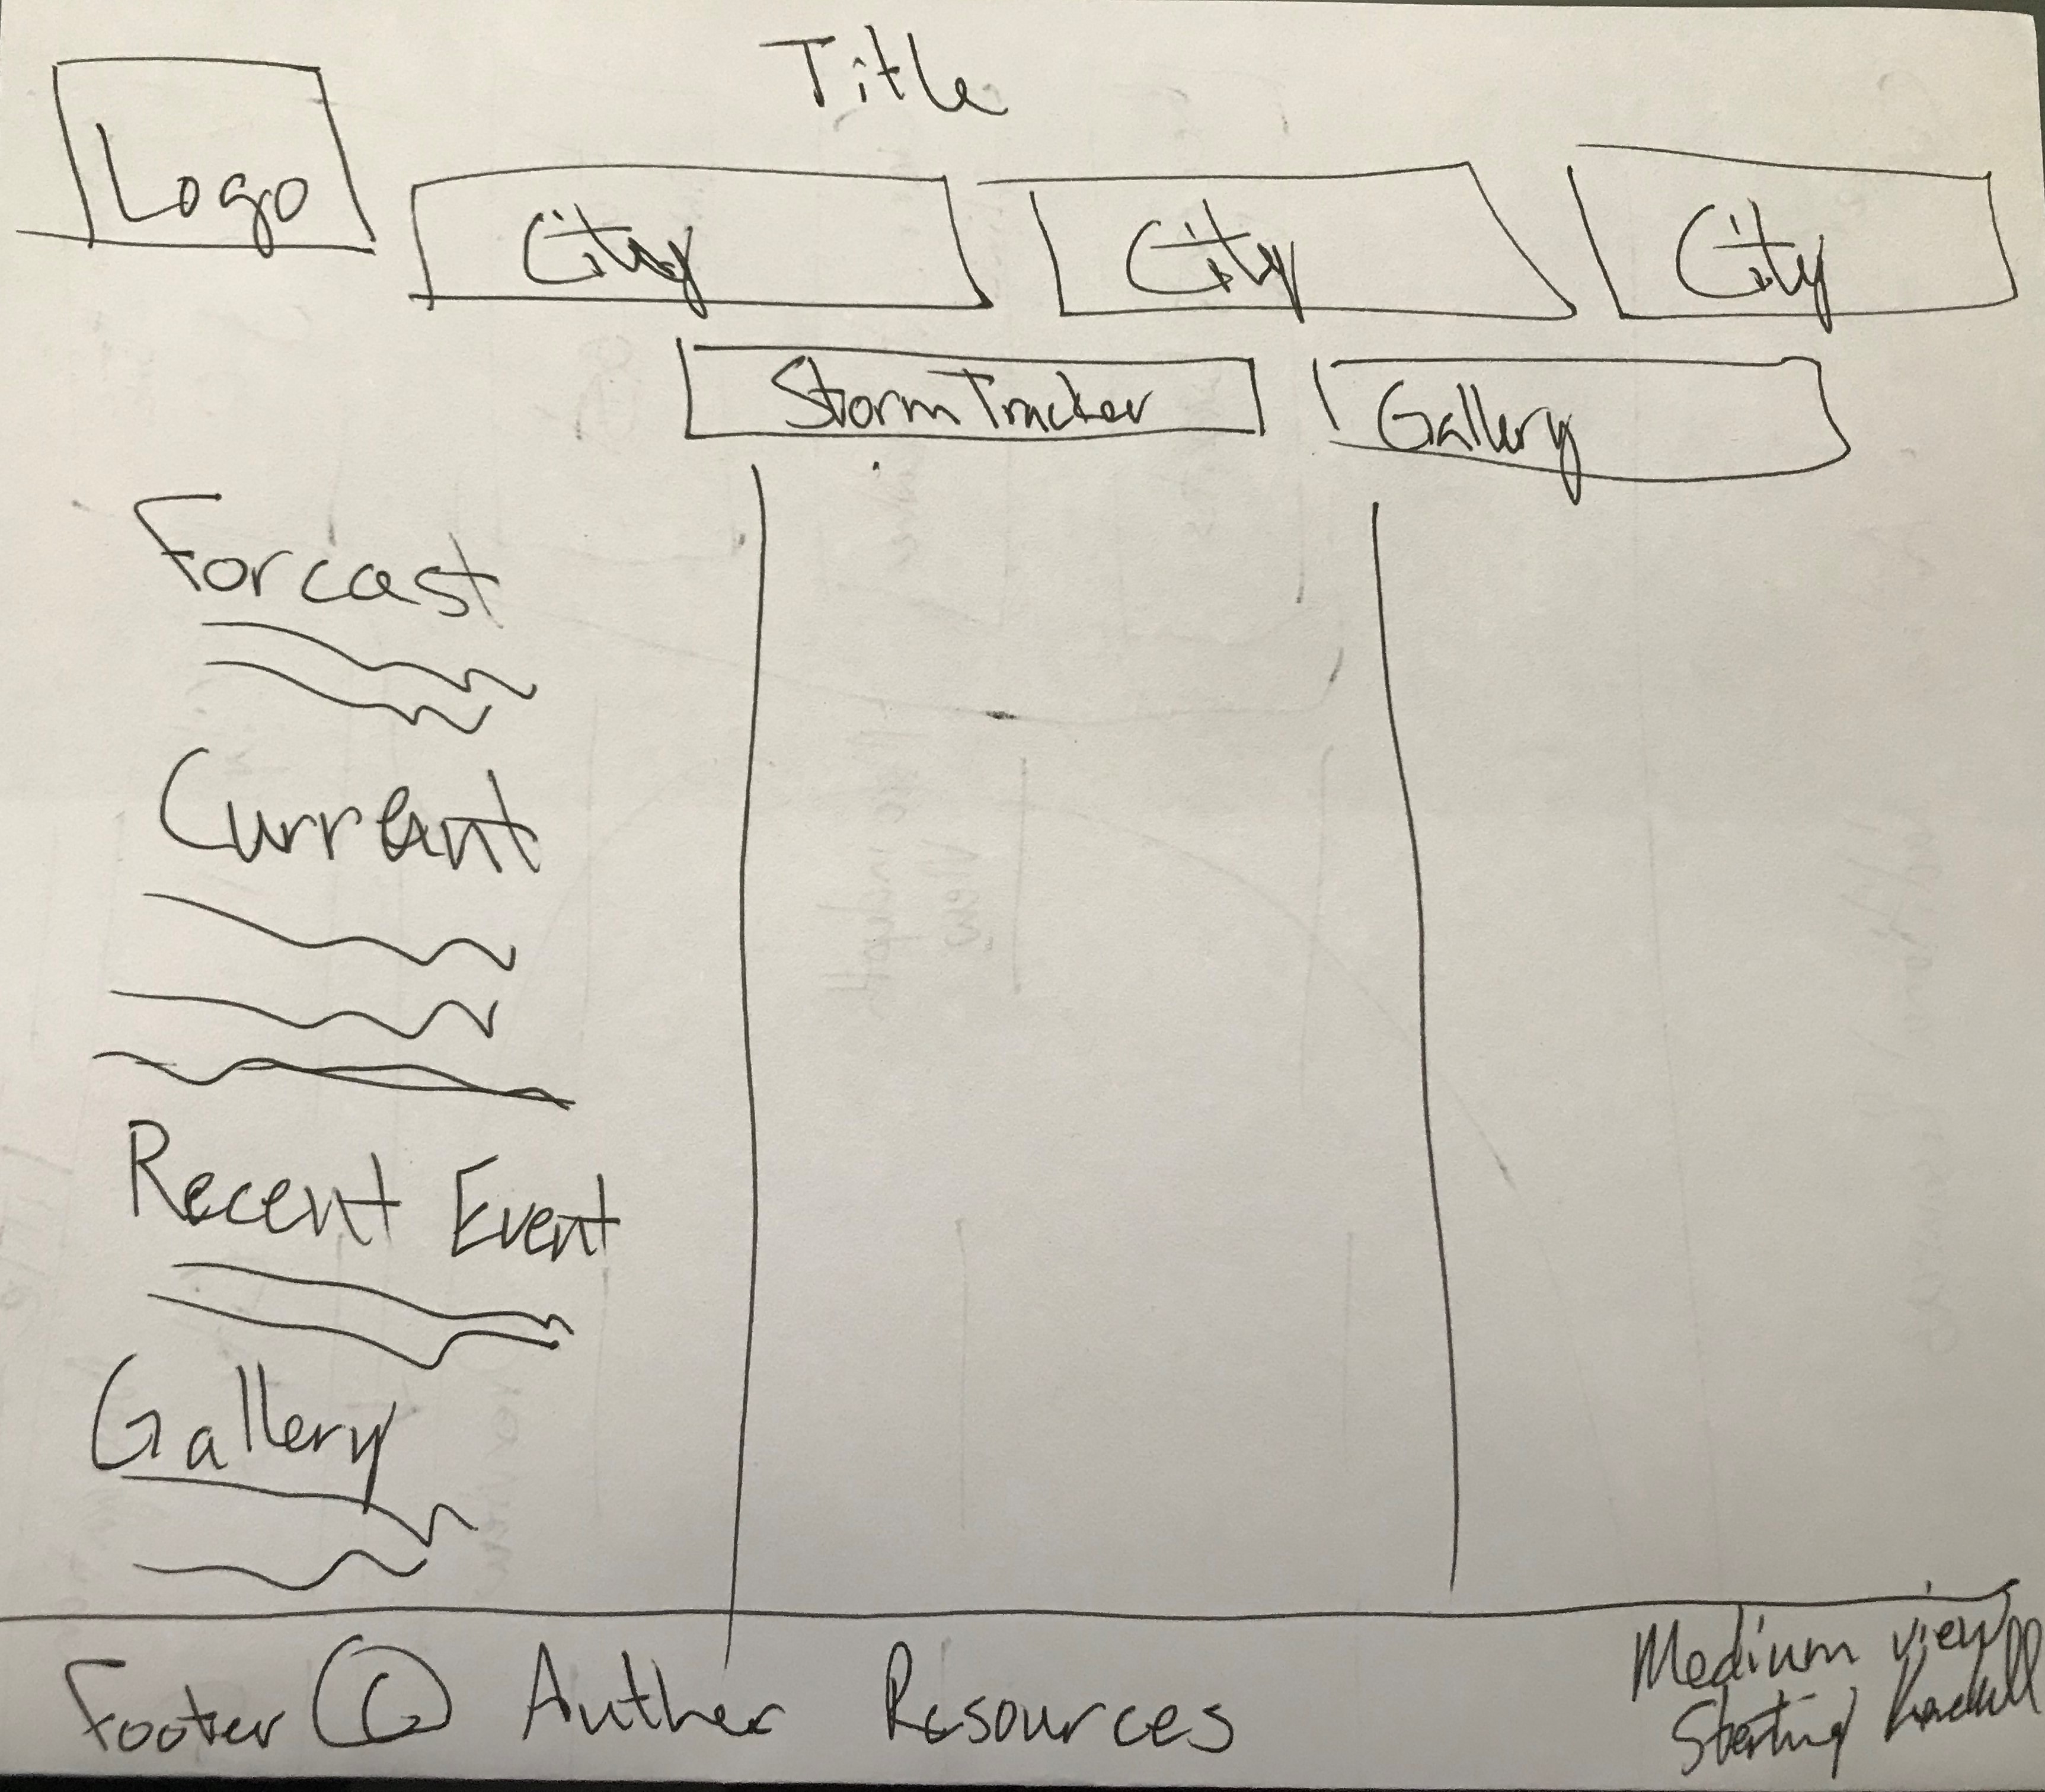 Title
Logo
City City City
Storm Tracker Gallery
Forcast
Current
Recent Event
Gallery
Footer © Auther Resources
Medium view